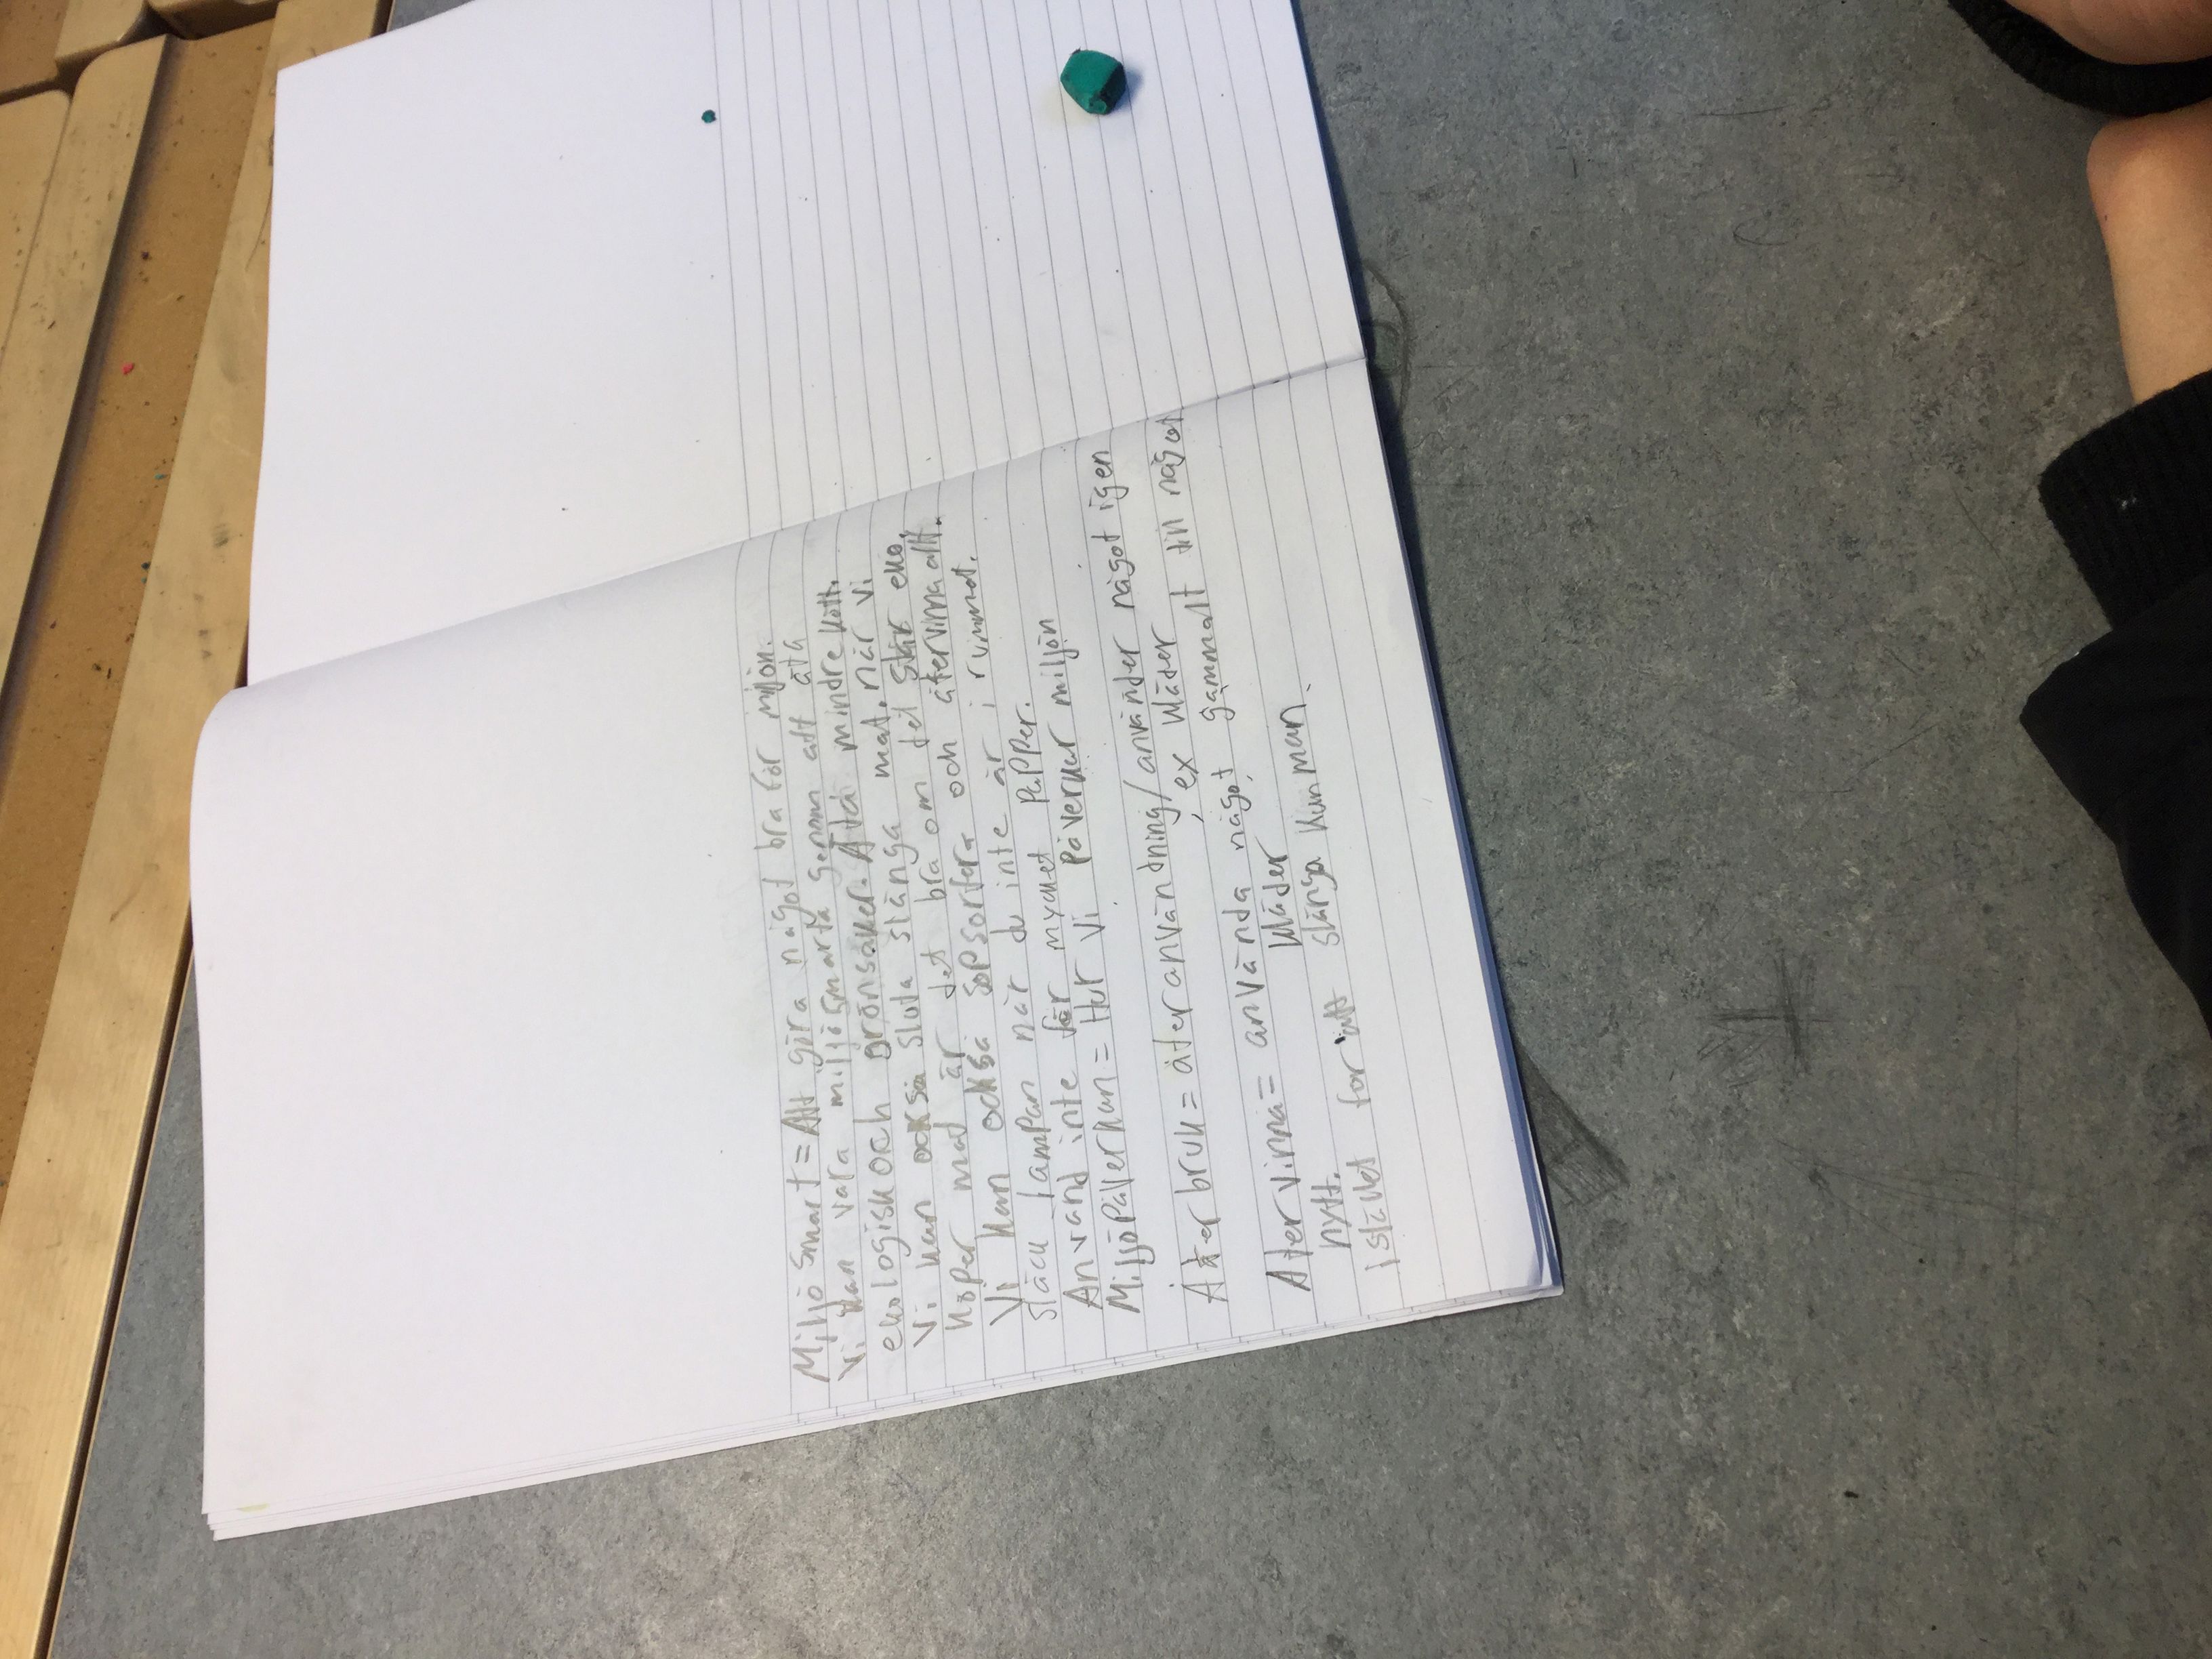 Miljö smart = Att göra något bra för mijön.
Vi kan vara miljösmarta genom att äta
ekologisk och grönsaker. Äta mindre kött.
Vi kan också sluta slänga mat. när vi
köper mat är det bra om det står eko.
Vi kan också sopsortera och återvinna allt.
släck lampan när du inte är i rummet.
Använd inte för mycket papper.
Miljöpåverkan = Hur vi påverkar miljön
Återbruk = återanvändning/använder något igen
Återvinna = använda något, ex kläder till något
nytt. kläder gammalt
istället för att slänga kan man